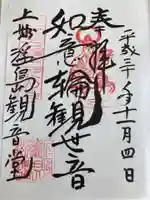 平成三十年十一月四日
奉拝
如意輪観世音
上州
観音堂